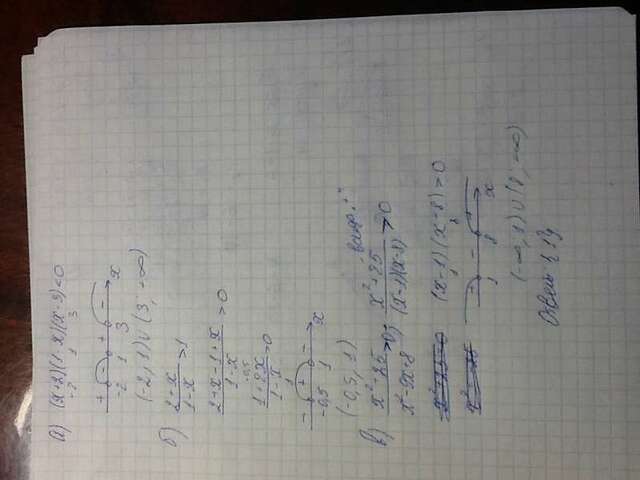 а) (x+2)(1-x)(x-3)<0
-2 1 3
+ - + -
-2 1 3 x
(-2, 1)∪(3; +∞)
б) 2+x / 1-x >1
2+x-1+x / 1-x >0
-0,5
1+2x / 1-x >0
1
- + -
-0,5 1 x
(-0,5, 1)
в) x²+25 / x²-9x+8 >0; x²+25 / (x-1)(x-8) >0
(x-1)(x-8)>0
1 8
+ - +
1 8 x
(-∞, 1)∪(8, +∞)
Ответ: